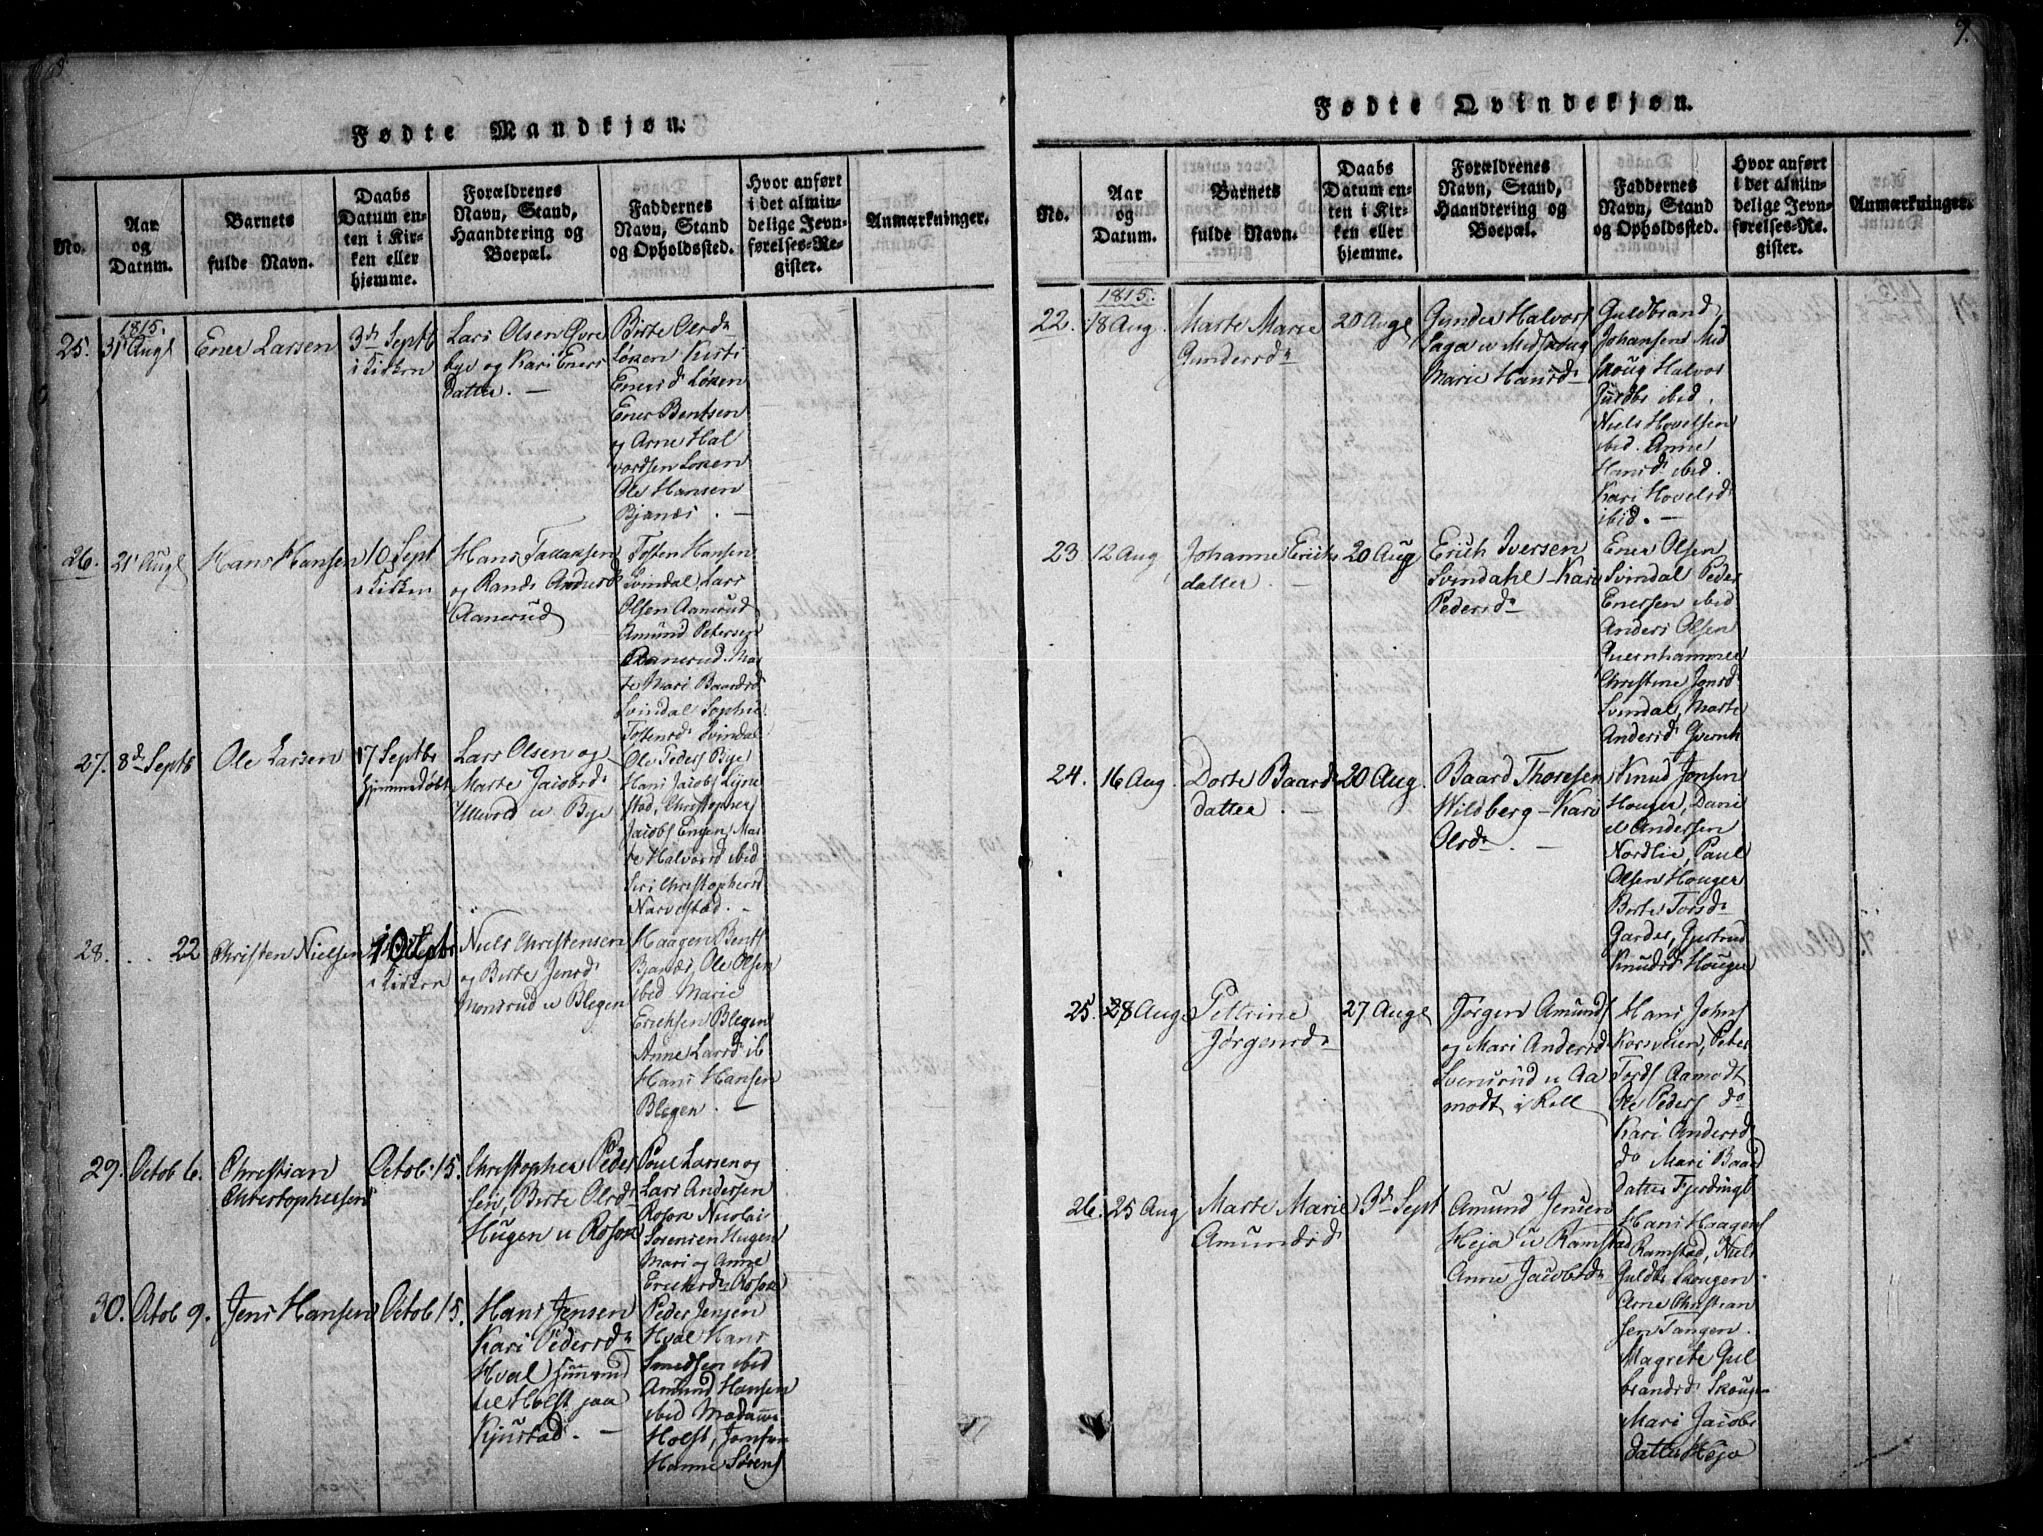 8.
Fødte Mandkjøn.
No.
Aar og Datum.
Barnets fulde Navn.
Daabs Datum enten i Kirken eller hjemme.
Forældrenes Navn, Stand, Haandtering og Boepæl.
Faddernes Navn, Stand og Opholdssted.
Hvor anført i det almindelige Jevnførelses-Register.
Anmærkninger.
1815.
25.
31 Augt
Ener Larsen
3d Septb
i Kirken
Lars Olsen Øvre
bye og Kari Eners
Datter. —
Birte Olsd
Løken Kirsti
Enersd Løken
Ener Bentsen
og Arne Hal
vordsen Løken
Ole Hansen
Bjanæs. —
26.
21 Augt
Hans Hansen
10 Sept
i Kirken
Hans Tallaksen
og Randi Andersd
Aanerud
Tosten Hansen
Svindal, Lars
Olsen Aanerud
Amund Petersen
Aanerud. Mar
te Mari Baardsd
Svindal Sophie
Tostensd Svindal
27.
8d Septb
Ole Larsen
17 Septbr
hjemmedøbt
Lars Olsen og
Marte Jacobsd
Ullevold u Bye
Ole Peders Bye
Hans Jacobs Kyne
stad, Christopher
Jacobs Engen, Mar
te Halvorsd ibid
Siri Christophersd
Narvestad. —
28.
. . 22
Christen Nielsen
1 Octbr
i Kirken
Niels Christensen
og Birte Jensd
Monsrud u Blegen
Haagen Bents
Bjanæs, Ole Olsen
ibid Marie
Ericksen Blegen
Anne Larsd ib
Hans Hansen
Blegen. —
29.
Octob 6.
Christian
Christophersen
Octob. 15.
Christopher Peder
sen, Birte Olsd
Hugen u Roson
Poul Larsen og
Lars Andersen
Roson Nicolai
Sorensen Hugen
Mari og Anne
Ericksd Roson
30.
Octob 9.
Jens Hansen
Octob 15.
Hans Jensen
Kari Pedersd
Hval
til Holst paa
Kjustad. —
Peder Jensen
Hval Hans
Smedsen ibid
Amund Hansen
ibid Madame
Holst, Jomfru
Hanne Sørens
9.
Fødte Qvindekjøn.
No.
Aar og Datum.
Barnets fulde Navn.
Daabs Datum enten i Kirken eller hjemme.
Forældrenes Navn, Stand, Haandtering og Boepæl.
Faddernes Navn, Stand og Opholdssted.
Hvor anført i det almindelige Jevnførelses-Register.
Anmærkninger.
1815.
22.
18 Aug.
Marte Marie
Gundersd
20 Augt
Gunder Halvors
Saga u Midskoug
Marie Hansd
Guldbrand
Johansens Mid
skoug Halvor
Guldbr ibid.
Niels Hovelsen
ibid. Anne
Hansd ibid.
Kari Hovelsd
ibid. —
23
12 Aug
Johanne Ericks
datter. —
20 Aug
Erich Iversen
Svindahl — Kari
Pedersd
Ener Olsen
Svindal Peder
Enersen ibid
Anders Olsen
Quernhammer
Christine Jensd
Svindal, Marte
Andersd Qvernh
24.
16 Aug.
Dorte Baards
datter. —
20 Aug.
Baard Thoresen
Wildberg — Kari
Olsd. —
Knud Jonsen
Houger, Dani
el Andersen
Nordlie, Paul
Olsen Houger
Berte Torsd
Garder, Gjertrud
Knudsd Houger
25.
28 Aug
Pettrine
Jørgensd
27 Augt
Jørgen Amunds
og Mari Andersd
Svensrud u Aa
modt i Rell
Hans Johns
Korsveien, Peter
Tords Aamodt
Ole Peders do
Kari Andersd
do Mari Baard
datter Fjerdingb
26.
25 Aug
Marte Marie
Amundsd
3d Sept
Amund Jensen
Heja u Ramstad
Anne Jacobsd
Hans Haagens
Ramstad, Niels
Guldbr Skougen.
Arne Christian
sen Tangen.
Magrete Gul
brandsd Skougen
Mari Jacobs
datter Heja